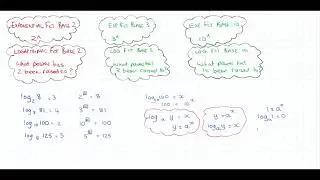 EXPONENTIAL FCT BASE 2
2^x
LOGARITHMIC FCT BASE 2
WHAT POWER HAS
2 BEEN RAISED TO?
EXP FCT BASE 3
3^x
LOG FCT BASE 3
WHAT POWER HAS
3 BEEN RAISED TO?
EXP FCT BASE 10
10^x
LOG FCT BASE 10
WHAT POWER HAS
10 BEEN RAISED TO?
log₂ 8 = 3 2³ = 8
log₃ 81 = 4 3⁴ = 81
log₁₀ 100 = 2 10² = 100
log₅ 125 = 3 5³ = 125
log₁₀ 100 = x
100 = 10^x
log_a y = x
y = a^x
y = a^x
log_a y = x
1 = a°
log_a 1 = 0